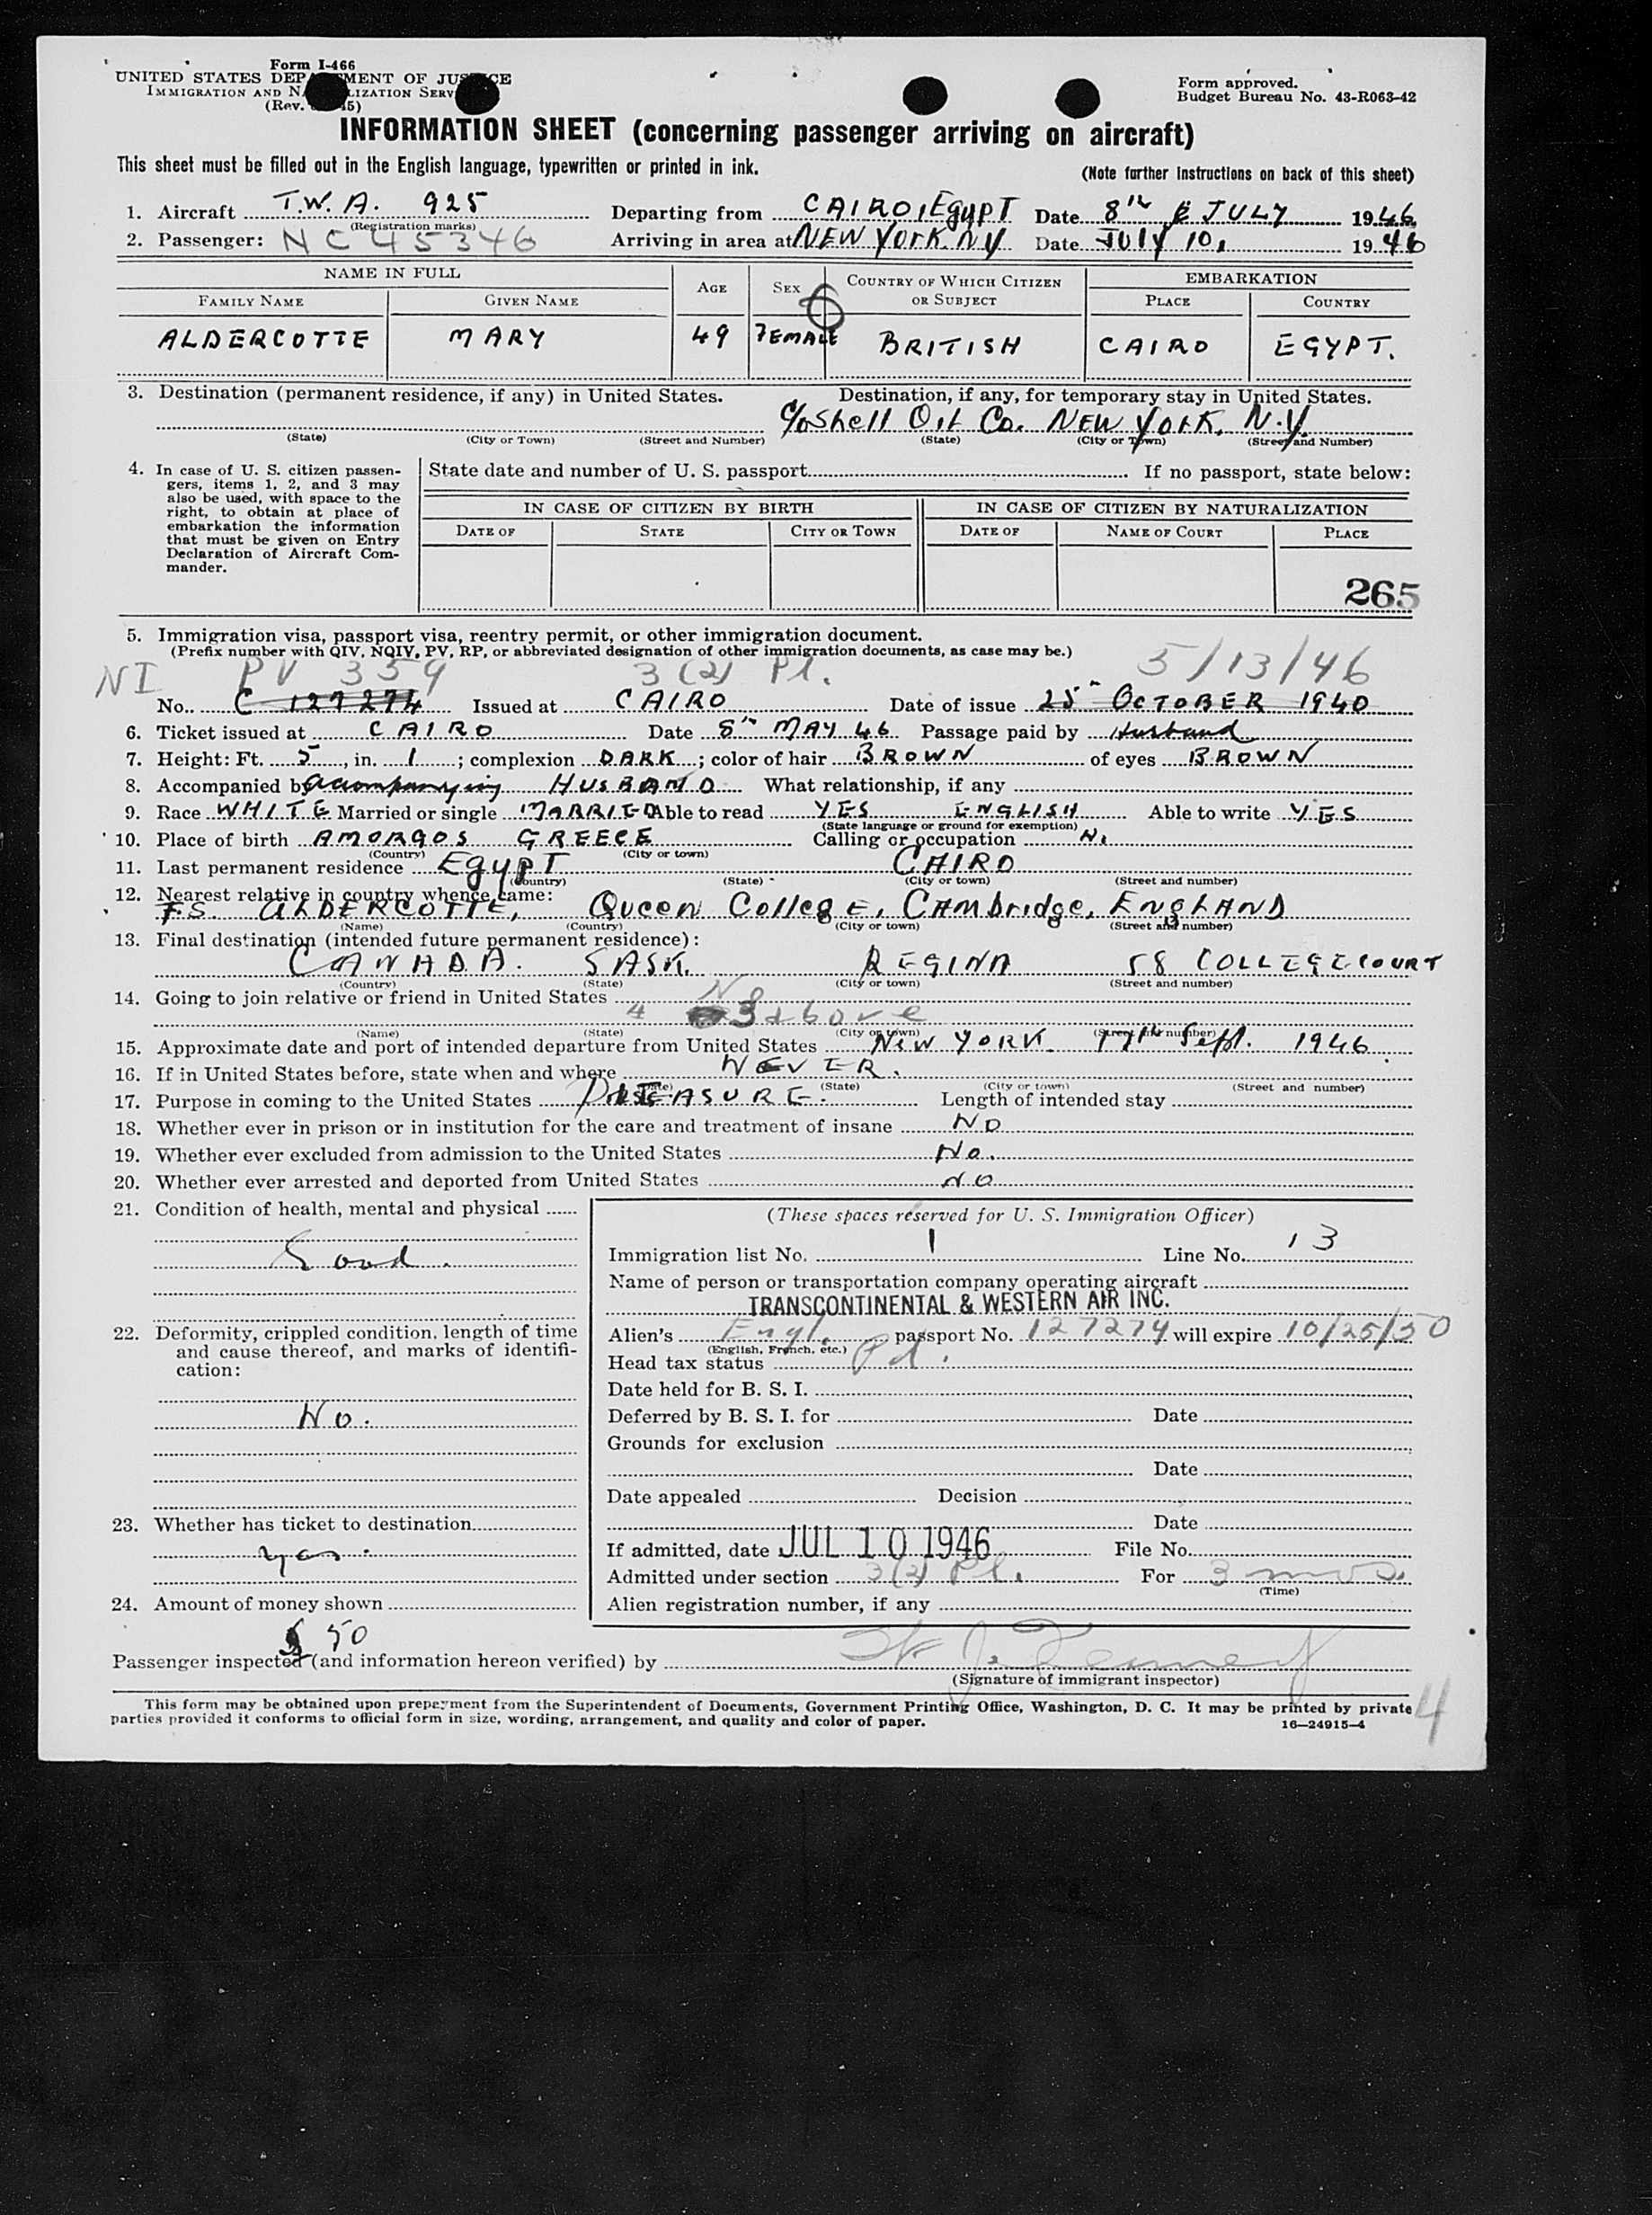 Form I-466
UNITED STATES DEP MENT OF JUS CE
IMMIGRATION AND NA LIZATION SERV
(Rev. 45)
Form approved.
Budget Bureau No. 43-R063-42
INFORMATION SHEET (concerning passenger arriving on aircraft)
This sheet must be filled out in the English language, typewritten or printed in ink. (Note further instructions on back of this sheet)
1. Aircraft T.W.A. 925 Departing from CAIRO, EGYPT Date 8th JULY 1946
(Registration marks)
2. Passenger: NC 45346 Arriving in area at NEW YORK. N.Y. Date JULY 10, 1946
NAME IN FULL AGE SEX COUNTRY OF WHICH CITIZEN OR SUBJECT EMBARKATION
FAMILY NAME GIVEN NAME PLACE COUNTRY
ALDERCOTTE MARY 49 FEMALE BRITISH CAIRO EGYPT.
3. Destination (permanent residence, if any) in United States. Destination, if any, for temporary stay in United States.
c/o Shell Oil Co. NEW YORK. N.Y.
(State) (City or Town) (Street and Number) (State) (City or Town) (Street and Number)
4. In case of U. S. citizen passengers, items 1, 2, and 3 may also be used, with space to the right, to obtain at place of embarkation the information that must be given on Entry Declaration of Aircraft Commander.
State date and number of U. S. passport If no passport, state below:
IN CASE OF CITIZEN BY BIRTH IN CASE OF CITIZEN BY NATURALIZATION
DATE OF STATE CITY OR TOWN DATE OF NAME OF COURT PLACE
265
5. Immigration visa, passport visa, reentry permit, or other immigration document.
(Prefix number with QIV, NQIV, PV, RP, or abbreviated designation of other immigration documents, as case may be.)
NI PV 359 3(2) Pl. 5/13/46
No. C 127274 Issued at CAIRO Date of issue 25th OCTOBER 1940
6. Ticket issued at CAIRO Date 8th MAY 46 Passage paid by Husband
7. Height: Ft. 5, in. 1; complexion DARK; color of hair BROWN of eyes BROWN
8. Accompanied by accompanying HUSBAND What relationship, if any
9. Race WHITE Married or single MARRIED Able to read YES ENGLISH Able to write YES
(State language or ground for exemption)
10. Place of birth AMORGOS GREECE Calling or occupation N.
(Country) (City or town)
11. Last permanent residence EGYPT CAIRO
(Country) (State) (City or town) (Street and number)
12. Nearest relative in country whence came:
F.S. ALDERCOTTE, Queen College, Cambridge, ENGLAND
(Name) (Country) (City or town) (Street and number)
13. Final destination (intended future permanent residence):
CANADA. SASK. REGINA 58 COLLEGE COURT
(Country) (State) (City or town) (Street and number)
14. Going to join relative or friend in United States No
4 3 above
(Name) (State) (City or town) (Street and number)
15. Approximate date and port of intended departure from United States NEW YORK Sept. 1946.
16. If in United States before, state when and where NEVER.
(Date) (State) (City or town) (Street and number)
17. Purpose in coming to the United States PLEASURE. Length of intended stay
18. Whether ever in prison or in institution for the care and treatment of insane NO
19. Whether ever excluded from admission to the United States No.
20. Whether ever arrested and deported from United States NO
21. Condition of health, mental and physical
Good.
22. Deformity, crippled condition, length of time and cause thereof, and marks of identification:
No.
23. Whether has ticket to destination
yes.
24. Amount of money shown
$ 50
(These spaces reserved for U. S. Immigration Officer)
Immigration list No. 1 Line No. 13
Name of person or transportation company operating aircraft
TRANSCONTINENTAL & WESTERN AIR INC.
Alien's Engl. passport No. 127274 will expire 10/25/50
(English, French, etc.)
Head tax status Pd.
Date held for B. S. I.
Deferred by B. S. I. for Date
Grounds for exclusion
Date
Date appealed Decision
Date
If admitted, date JUL 10 1946 File No.
Admitted under section 3(2) Pl. For 3 mos.
(Time)
Alien registration number, if any
Passenger inspected (and information hereon verified) by
(Signature of immigrant inspector)
This form may be obtained upon prepayment from the Superintendent of Documents, Government Printing Office, Washington, D. C. It may be printed by private
parties provided it conforms to official form in size, wording, arrangement, and quality and color of paper. 16—24915-4
4